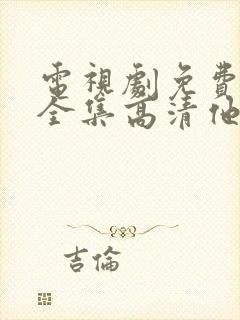 電視劇免費
全集高清他
吉倫